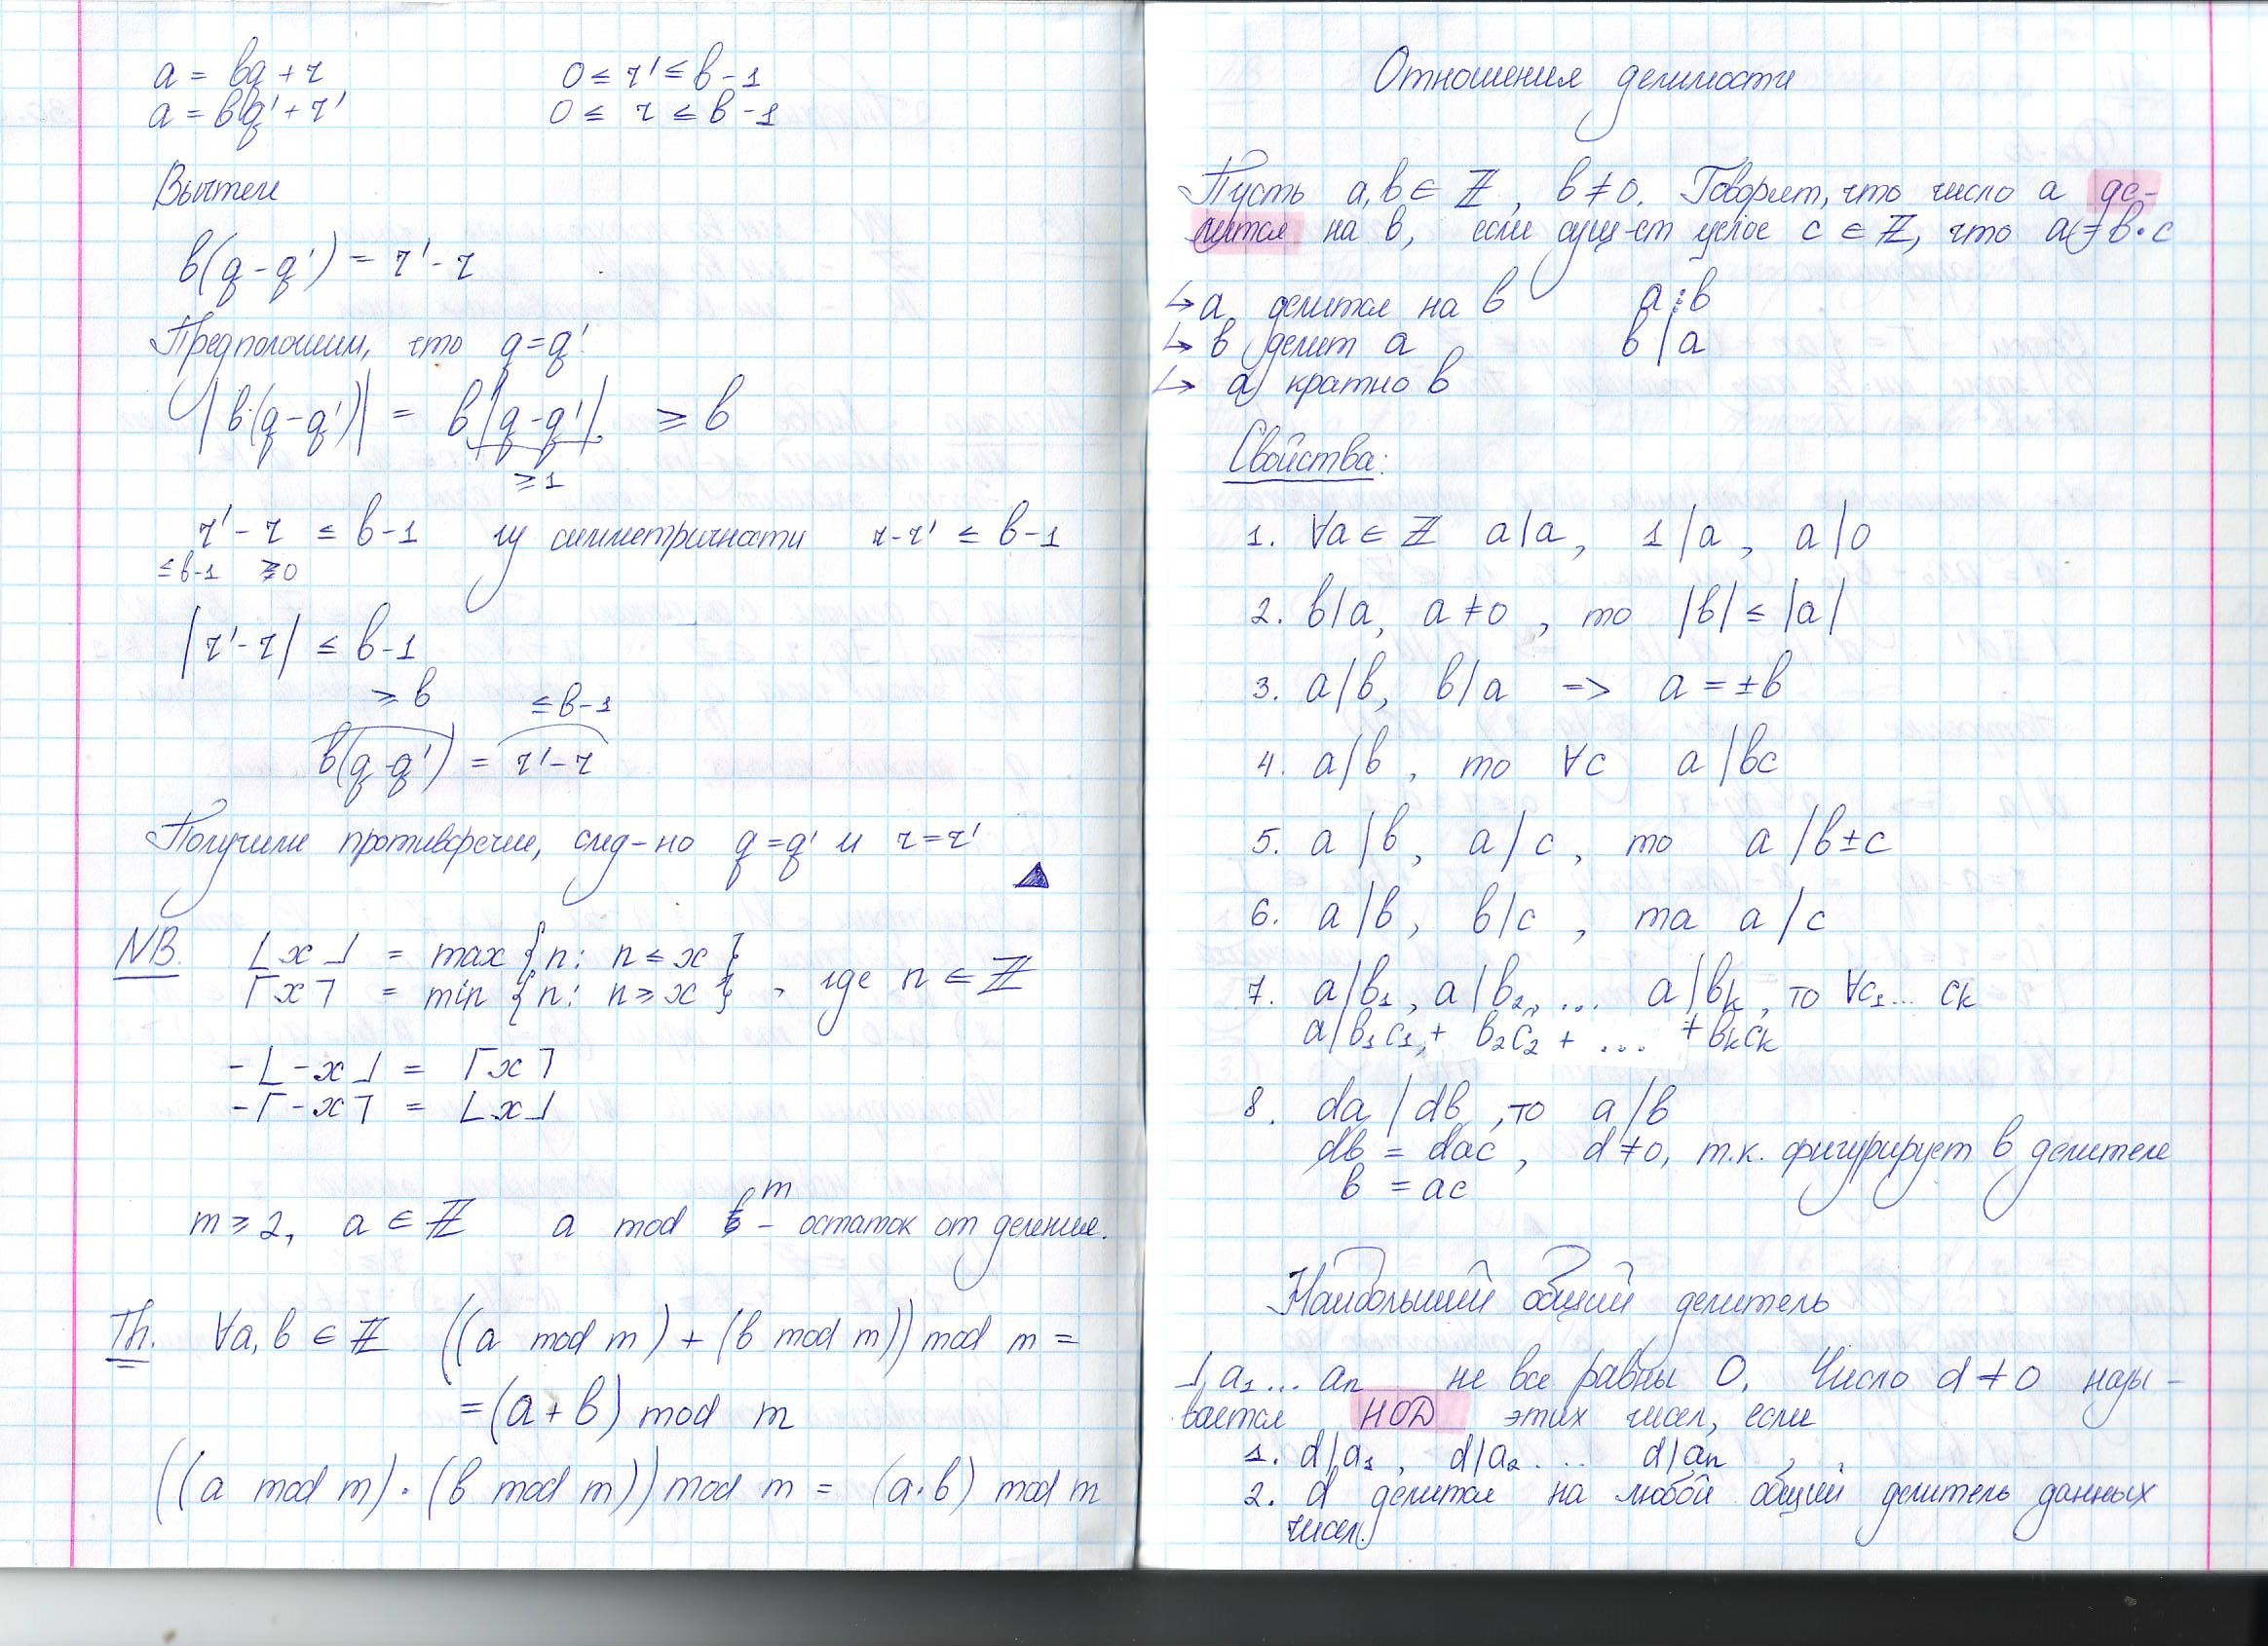 a = bq + r 0 ≤ r' ≤ b - 1
a = bq' + r' 0 ≤ r ≤ b - 1
Вычтем
b(q - q') = r' - r
Предположим, что q = q'
|b·(q - q')| = b|q - q'| ≥ b
≥ 1
r' - r ≤ b - 1 из симметричности r - r' ≤ b - 1
≤ b - 1 ≥ 0
|r' - r| ≤ b - 1
≥ b ≤ b - 1
b(q - q') = r' - r
Получили противоречие, след-но q = q' и r = r'
NB. ⌊x⌋ = max {n: n ≤ x}
⌈x⌉ = min {n: n ≥ x}, где n ∈ ℤ
-⌊-x⌋ = ⌈x⌉
-⌈-x⌉ = ⌊x⌋
m ≥ 2, a ∈ ℤ a mod m - остаток от деления.
Th. ∀a, b ∈ ℤ ((a mod m) + (b mod m)) mod m =
= (a + b) mod m
((a mod m) · (b mod m)) mod m = (a·b) mod m
Отношения делимости
Пусть a, b ∈ ℤ, b ≠ 0. Говорят, что число a де-
лится на b, если сущ-ет целое c ∈ ℤ, что a = b·c
↳ a делится на b a ⋮ b
↳ b делит a b | a
↳ a кратно b
Свойства:
1. ∀a ∈ ℤ a|a, 1|a, a|0
2. b|a, a ≠ 0, то |b| ≤ |a|
3. a|b, b|a => a = ±b
4. a|b, то ∀c a|bc
5. a|b, a|c, то a|b±c
6. a|b, b|c, та a|c
7. a|b₁, a|b₂, ... a|bₖ, то ∀c₁... cₖ
a|b₁c₁ + b₂c₂ + ... + bₖcₖ
8. da | db, то a|b
db = dac, d ≠ 0, т.к. фигурирует в делителе
b = ac
Наибольший общий делитель
⅃ a₁... aₙ не все равны 0. Число d ≠ 0 назы-
вается НОД этих чисел, если
1. d|a₁, d|a₂ ... d|aₙ
2. d делится на любой общий делитель данных
чисел.